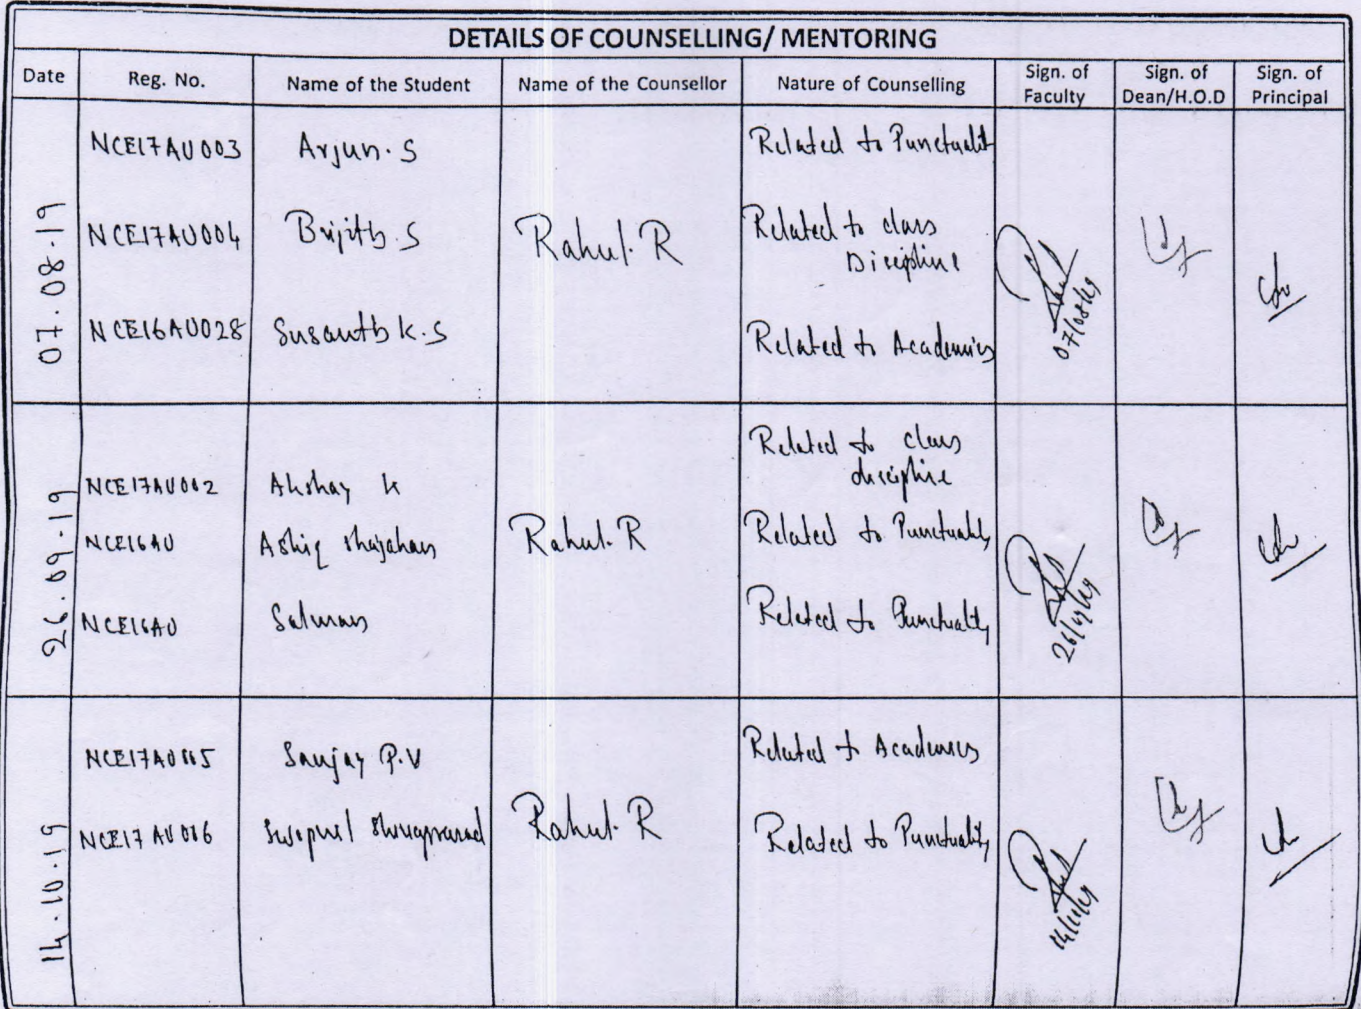 DETAILS OF COUNSELLING/ MENTORING
Date Reg. No. Name of the Student Name of the Counsellor Nature of Counselling Sign. of Faculty Sign. of Dean/H.O.D Sign. of Principal
07.08.19
NCE17AU003 Arjun.S Related to Punctualit
NCE17AU004 Brijith.S Rahul.R Related to class
Discipline
NCE16AU028 Susanth K.S Related to Academics
07/08/19
26.09.19
Related to class
discipline
NCE17AU002 Akshay K
NCE16AU Ashiq Shajahan Rahul.R Related to Punctuality
NCE16AU Salman Related to Punctuality
26/9/19
14.10.19
NCE17AU015 Sanjay P.V Related to Academics
NCE17AU016 Swapnil Shivaprasad Rahul.R Related to Punctuality
14/10/19